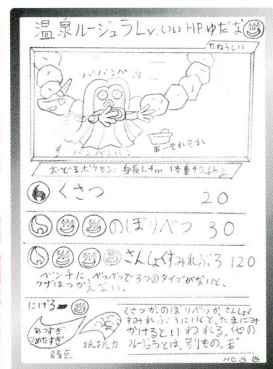 温泉ルージュラLv.いいHPゆだな
たねらしい
ババンバ
ババンバン
あーそれそれ
おどるポケモン 身長1.4m 体重40.6kg
くさつ 20
のぼりべつ 30
さんしょくすみれぶろ 120
ベンチに、べつべつで3つのタイプがないと、
ワザはつかえない。
にげる
あつすぎ
つめたすぎ
弱点
抵抗力
くさつかのぼりべつか、さんしょく
すみれぶろにいくと、たまにみ
かけるといわれる。他の
ルージュラとは、別もの。